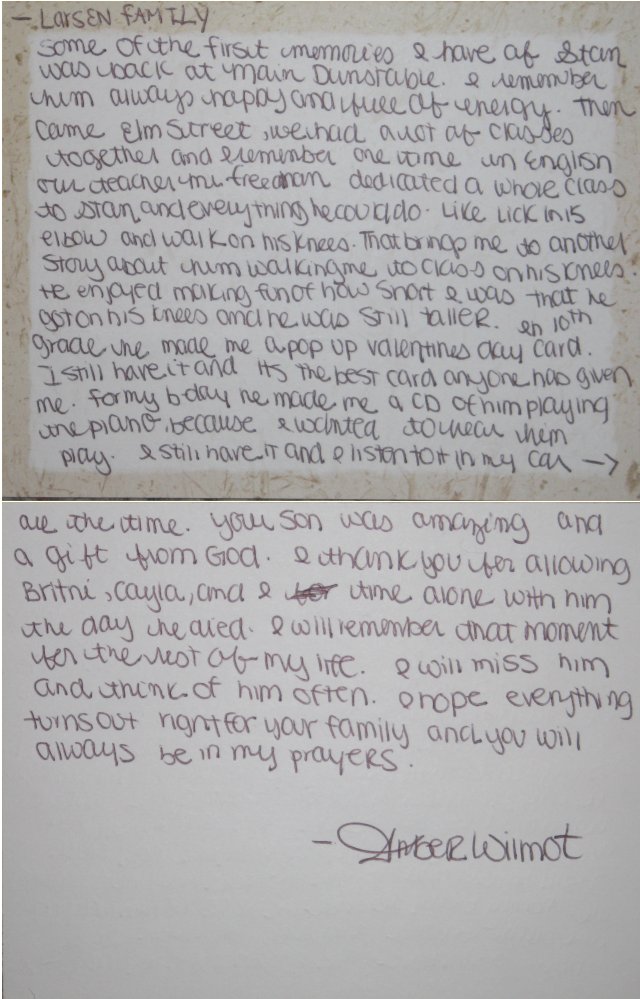 - LARSEN FAMILY
Some of the first memories I have of Stan
was back at Main Dunstable. I remember
him always happy and full of energy. Then
came Elm Street, we had a lot of classes
together and I remember one time in English
our teacher Mr. Freedman dedicated a whole class
to Stan and everything he could do. Like lick his
elbow and walk on his knees. That brings me to another
story about him walking me to class on his knees.
He enjoyed making fun of how short I was that he
got on his knees and he was still taller. In 10th
grade he made me a pop up valentines day card.
I still have it and its the best card anyone has given
me. For my b-day he made me a CD of him playing
the piano, because I wanted to hear him
play. I still have it and I listen to it in my car →
all the time. Your son was amazing and
a gift from God. I thank you for allowing
Britni, Cayla, and I time alone with him
the day he died. I will remember that moment
for the rest of my life. I will miss him
and think of him often. I hope everything
turns out right for your family and you will
always be in my prayers.
- Amber Wilmot